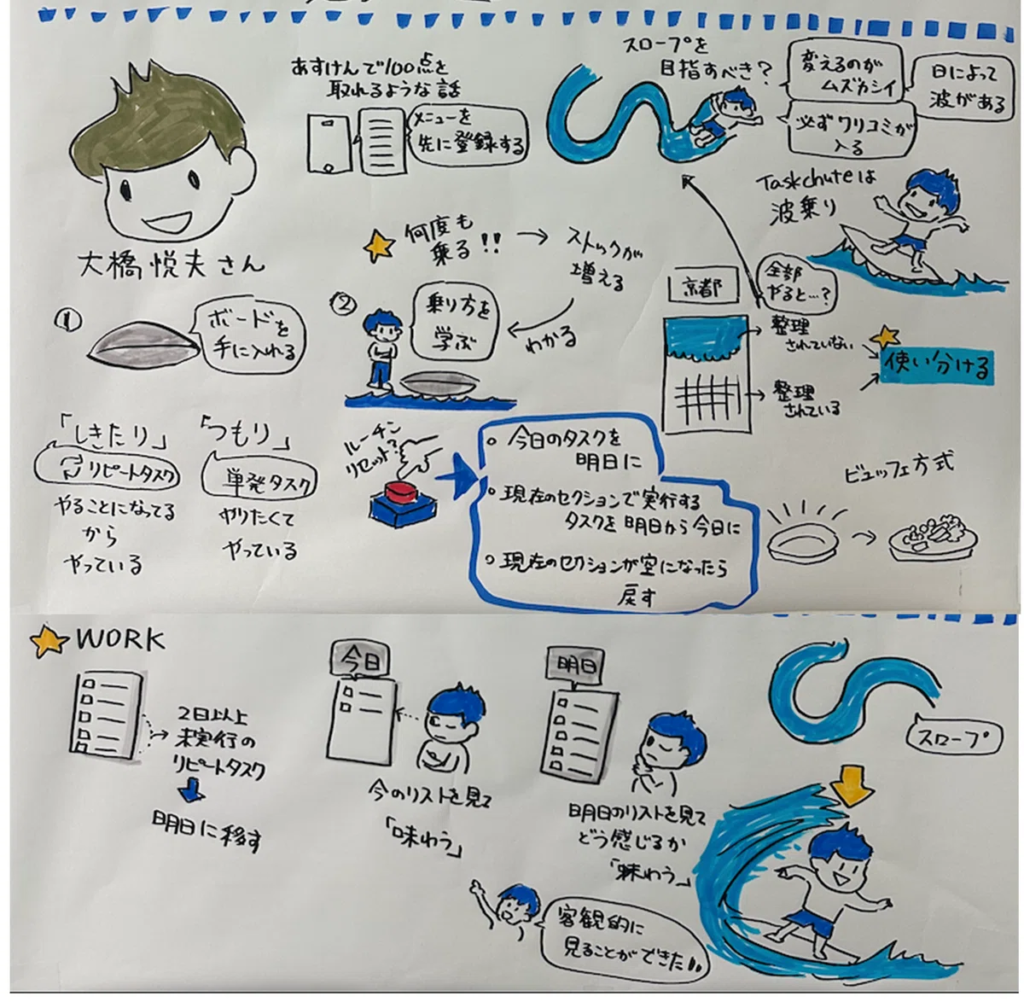 あすけんで100点を
取れるような話
メニューを
先に登録する
スロープを
目指すべき?
変えるのが
ムズカシイ
日によって
波がある
必ずワリコミが
入る
Taskchuteは
波乗り
大橋悦夫さん
何度も
乗る!!
→ ストックが
増える
わかる
①
ボードを
手に入れる
②
乗り方を
学ぶ
京都
全部
やると…?
整理
されていない
整理
されている
使い分ける
「しきたり」
リピートタスク
やることになってる
から
やっている
「つもり」
単発タスク
やりたくて
やっている
ルーチン
リセット?
○ 今日のタスクを
明日に
○ 現在のセクションで実行する
タスクを明日から今日に
○ 現在のセクションが空になったら
戻す
ビュッフェ方式
WORK
2日以上
未実行の
リピートタスク
明日に移す
今日
今のリストを見て
「味わう」
明日
明日のリストを見て
どう感じるか
「味わう」
客観的に
見ることができた!!
スロープ